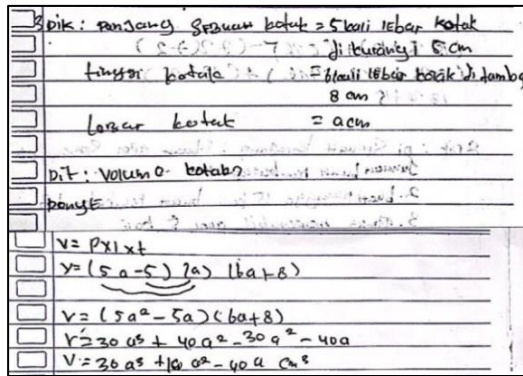 3 Dik : panjang sebuah kotak = 5 kali lebar kotak
dikurangi 5 cm
tinggi kotak = 6 kali lebar kotak ditambah
8 cm
Lebar kotak = a cm
Dit : Volume kotak?
V = p x l x t
V = (5a - 5) (a) (6a + 8)
V = (5a² - 5a) (6a + 8)
V = 30 a³ + 40 a² - 30 a² - 40a
V = 30 a³ + 10 a² - 40 a cm³